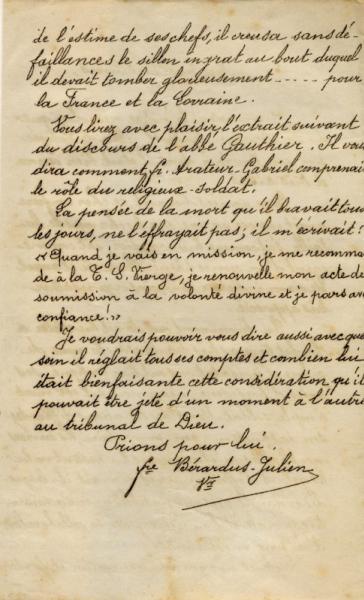 de l'estime de ses chefs, il creusa sans dé-
faillances le sillon ingrat au bout duquel
il devait tomber glorieusement ..... pour
la France et la Lorraine.
Vous lirez avec plaisir, l'extrait suivant
du discours de l'abbé Gauthier. Il vous
dira comment, fr. Arateur-Gabriel comprenait
le rôle du religieux-soldat.
La pensée de la mort qu'il bravait tous
les jours, ne l'effrayait pas; il m'écrivait:
"Quand je vais en mission, je me recomman
de à la T. S. Vierge, je renouvelle mon acte de
soumission à la volonté divine et je pars avec
confiance!"
Je voudrais pouvoir vous dire aussi avec quel
soin il réglait tous ses comptes et combien lui
était bienfaisante cette considération qu'il
pouvait être jeté d'un moment à l'autre
au tribunal de Dieu.
Prions pour lui.
fre Bérardus-Julien